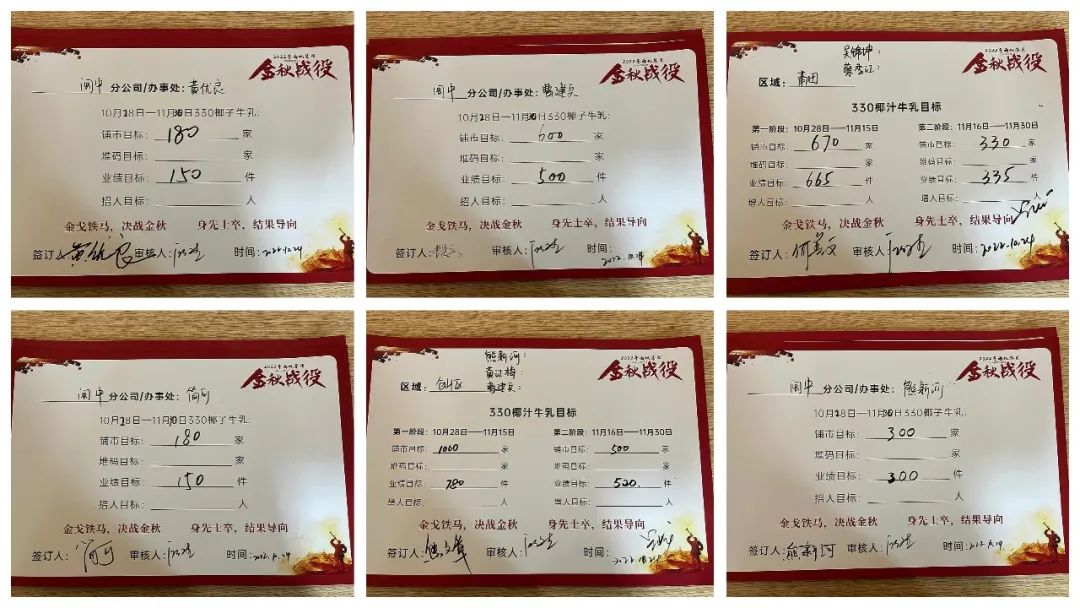 2022年南北美食
金秋战役
闽中 分公司/办事处：黄优良
10月28日—11月30日330椰子牛乳：
铺市目标：180 家
堆码目标： 家
业绩目标：150 件
招人目标： 人
金戈铁马，决战金秋 身先士卒，结果导向
签订人：黄优良 审核人： 时间：2022.10.24
金秋战役
闽中 分公司/办事处：
10月28日—11月30日330椰子牛乳：
铺市目标：600 家
堆码目标： 家
业绩目标：500 件
招人目标： 人
金戈铁马，决战金秋 身先士卒，结果导向
签订人： 审核人： 时间：
2022.10.24
吴锦坤：
金秋战役
区域：莆田
330椰汁牛乳目标
第一阶段：10月28日——11月15日 第二阶段：11月16日——11月30日
铺市目标：670 家 铺市目标：330 家
堆码目标： 家 堆码目标： 家
业绩目标：665 件 业绩目标：335 件
增人目标： 人 增人目标： 人
金戈铁马，决战金秋 身先士卒，结果导向
签订人： 审核人： 时间：2022.10.24
金秋战役
闽中 分公司/办事处：
10月28日—11月30日330椰子牛乳：
铺市目标：180 家
堆码目标： 家
业绩目标：150 件
招人目标： 人
金戈铁马，决战金秋 身先士卒，结果导向
签订人： 审核人： 时间：2022.10.24
熊新河：
黄江梅：
金秋战役
区域：
330椰汁牛乳目标
第一阶段：10月28日——11月15日 第二阶段：11月16日——11月30日
铺市目标：1000 家 铺市目标：500 家
堆码目标： 家 堆码目标： 家
业绩目标：780 件 业绩目标：520 件
增人目标： 人 增人目标： 人
金戈铁马，决战金秋 身先士卒，结果导向
签订人： 审核人： 时间：
2022.10.24
金秋战役
闽中 分公司/办事处：熊新河
10月28日—11月30日330椰子牛乳：
铺市目标：300 家
堆码目标： 家
业绩目标：300 件
招人目标： 人
金戈铁马，决战金秋 身先士卒，结果导向
签订人：熊新河 审核人： 时间：2022.10.24